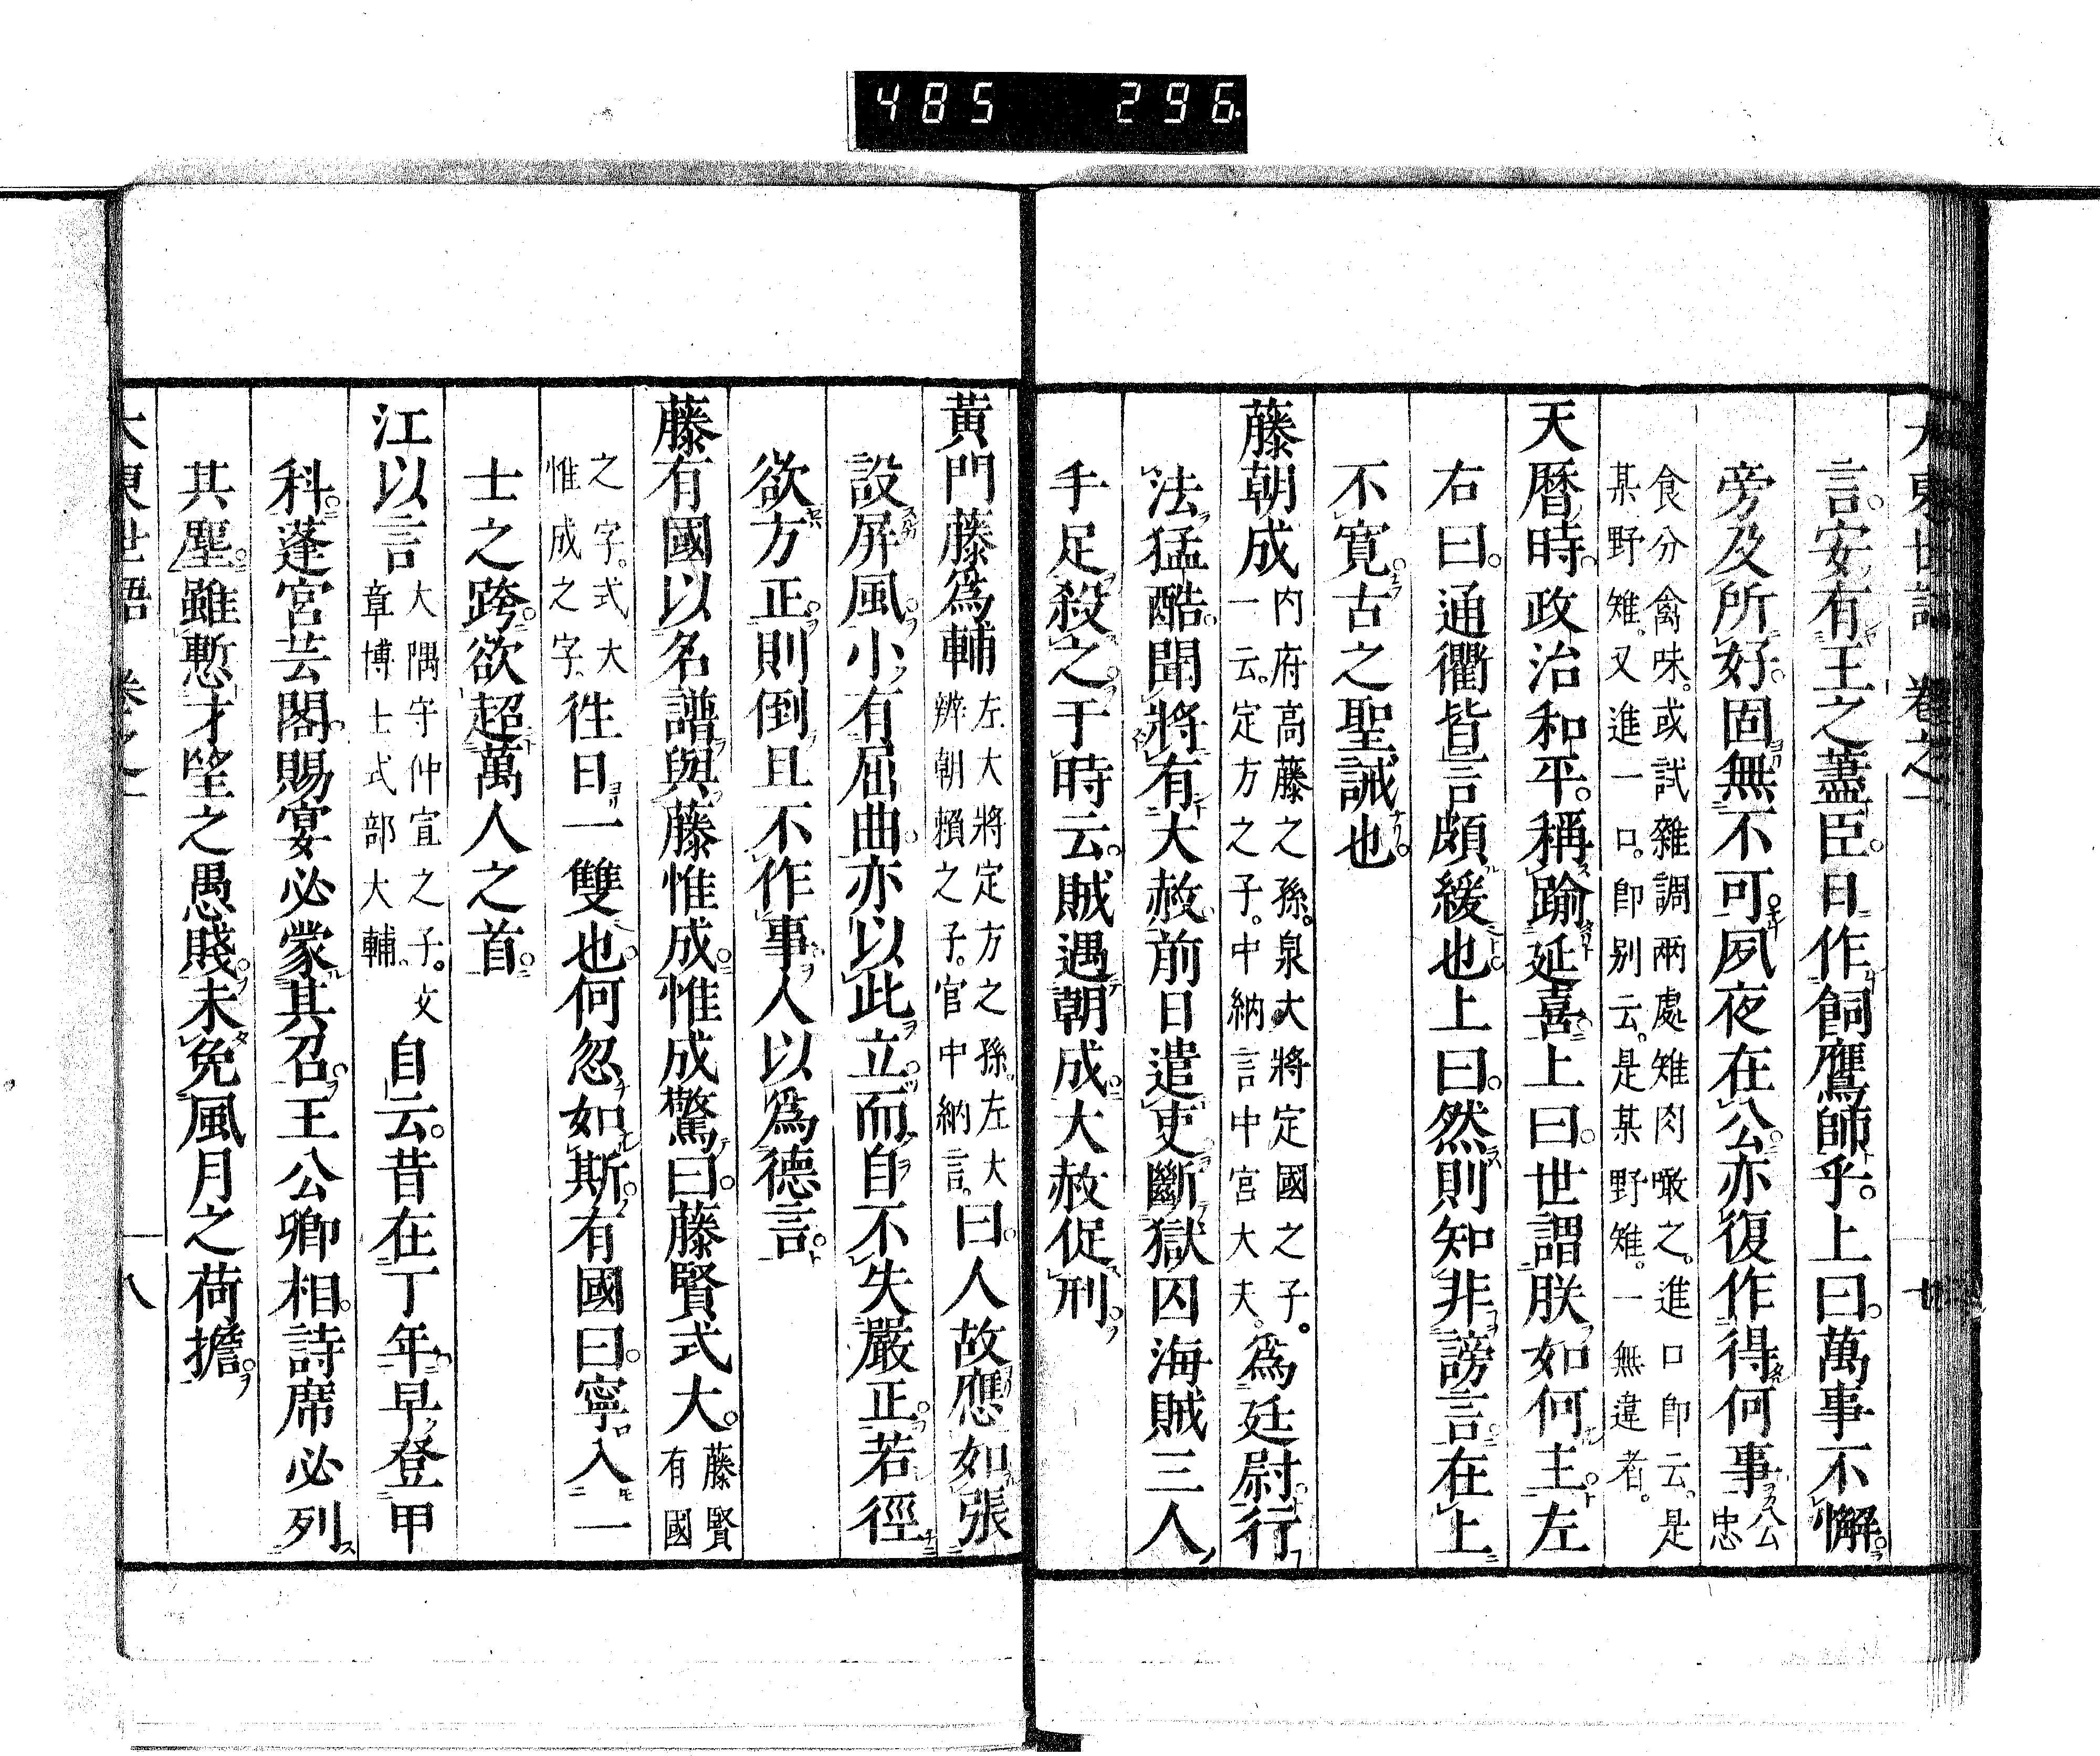 485 296
大東世語 卷之一
言安有王之藎臣日作飼鷹師乎上曰萬事不懈
旁及所好固無不可夙夜在公亦復作得何事公忠
食分禽味或試雜調兩處雉肉噉之進口即云是
某野雉又進一口即別云是某野雉一無違者
天曆時政治和平稱踰延喜上曰世謂朕如何主左
右曰通衢皆言頗緩也上曰然則知非謗言在上
不寛古之聖誡也
藤朝成内府高藤之孫泉大將定國之子
一云定方之子中納言中宮大夫爲廷尉行
法猛酷聞將有大赦前日遣吏斷獄囚海賊三人
手足殺之于時云賊遇朝成大赦促刑
黃門藤爲輔左大將定方之孫左大
辨朝賴之子官中納言曰人故應如張
設屏風小有屈曲亦以此立而自不失嚴正若徑
欲方正則倒且不作事人以爲德言
藤有國以名譜與藤惟成惟成驚曰藤賢式大藤賢
有國
之字式大
惟成之字往日一雙也何忽如斯有國曰寧入一
士之跨欲超萬人之首
江以言大隅守仲宣之子文
章博士式部大輔自云昔在丁年早登甲
科蓬宮芸閣賜宴必蒙其召王公卿相詩席必列
其塵雖慙才望之愚賤未免風月之荷擔
大東世語 卷之一 一八